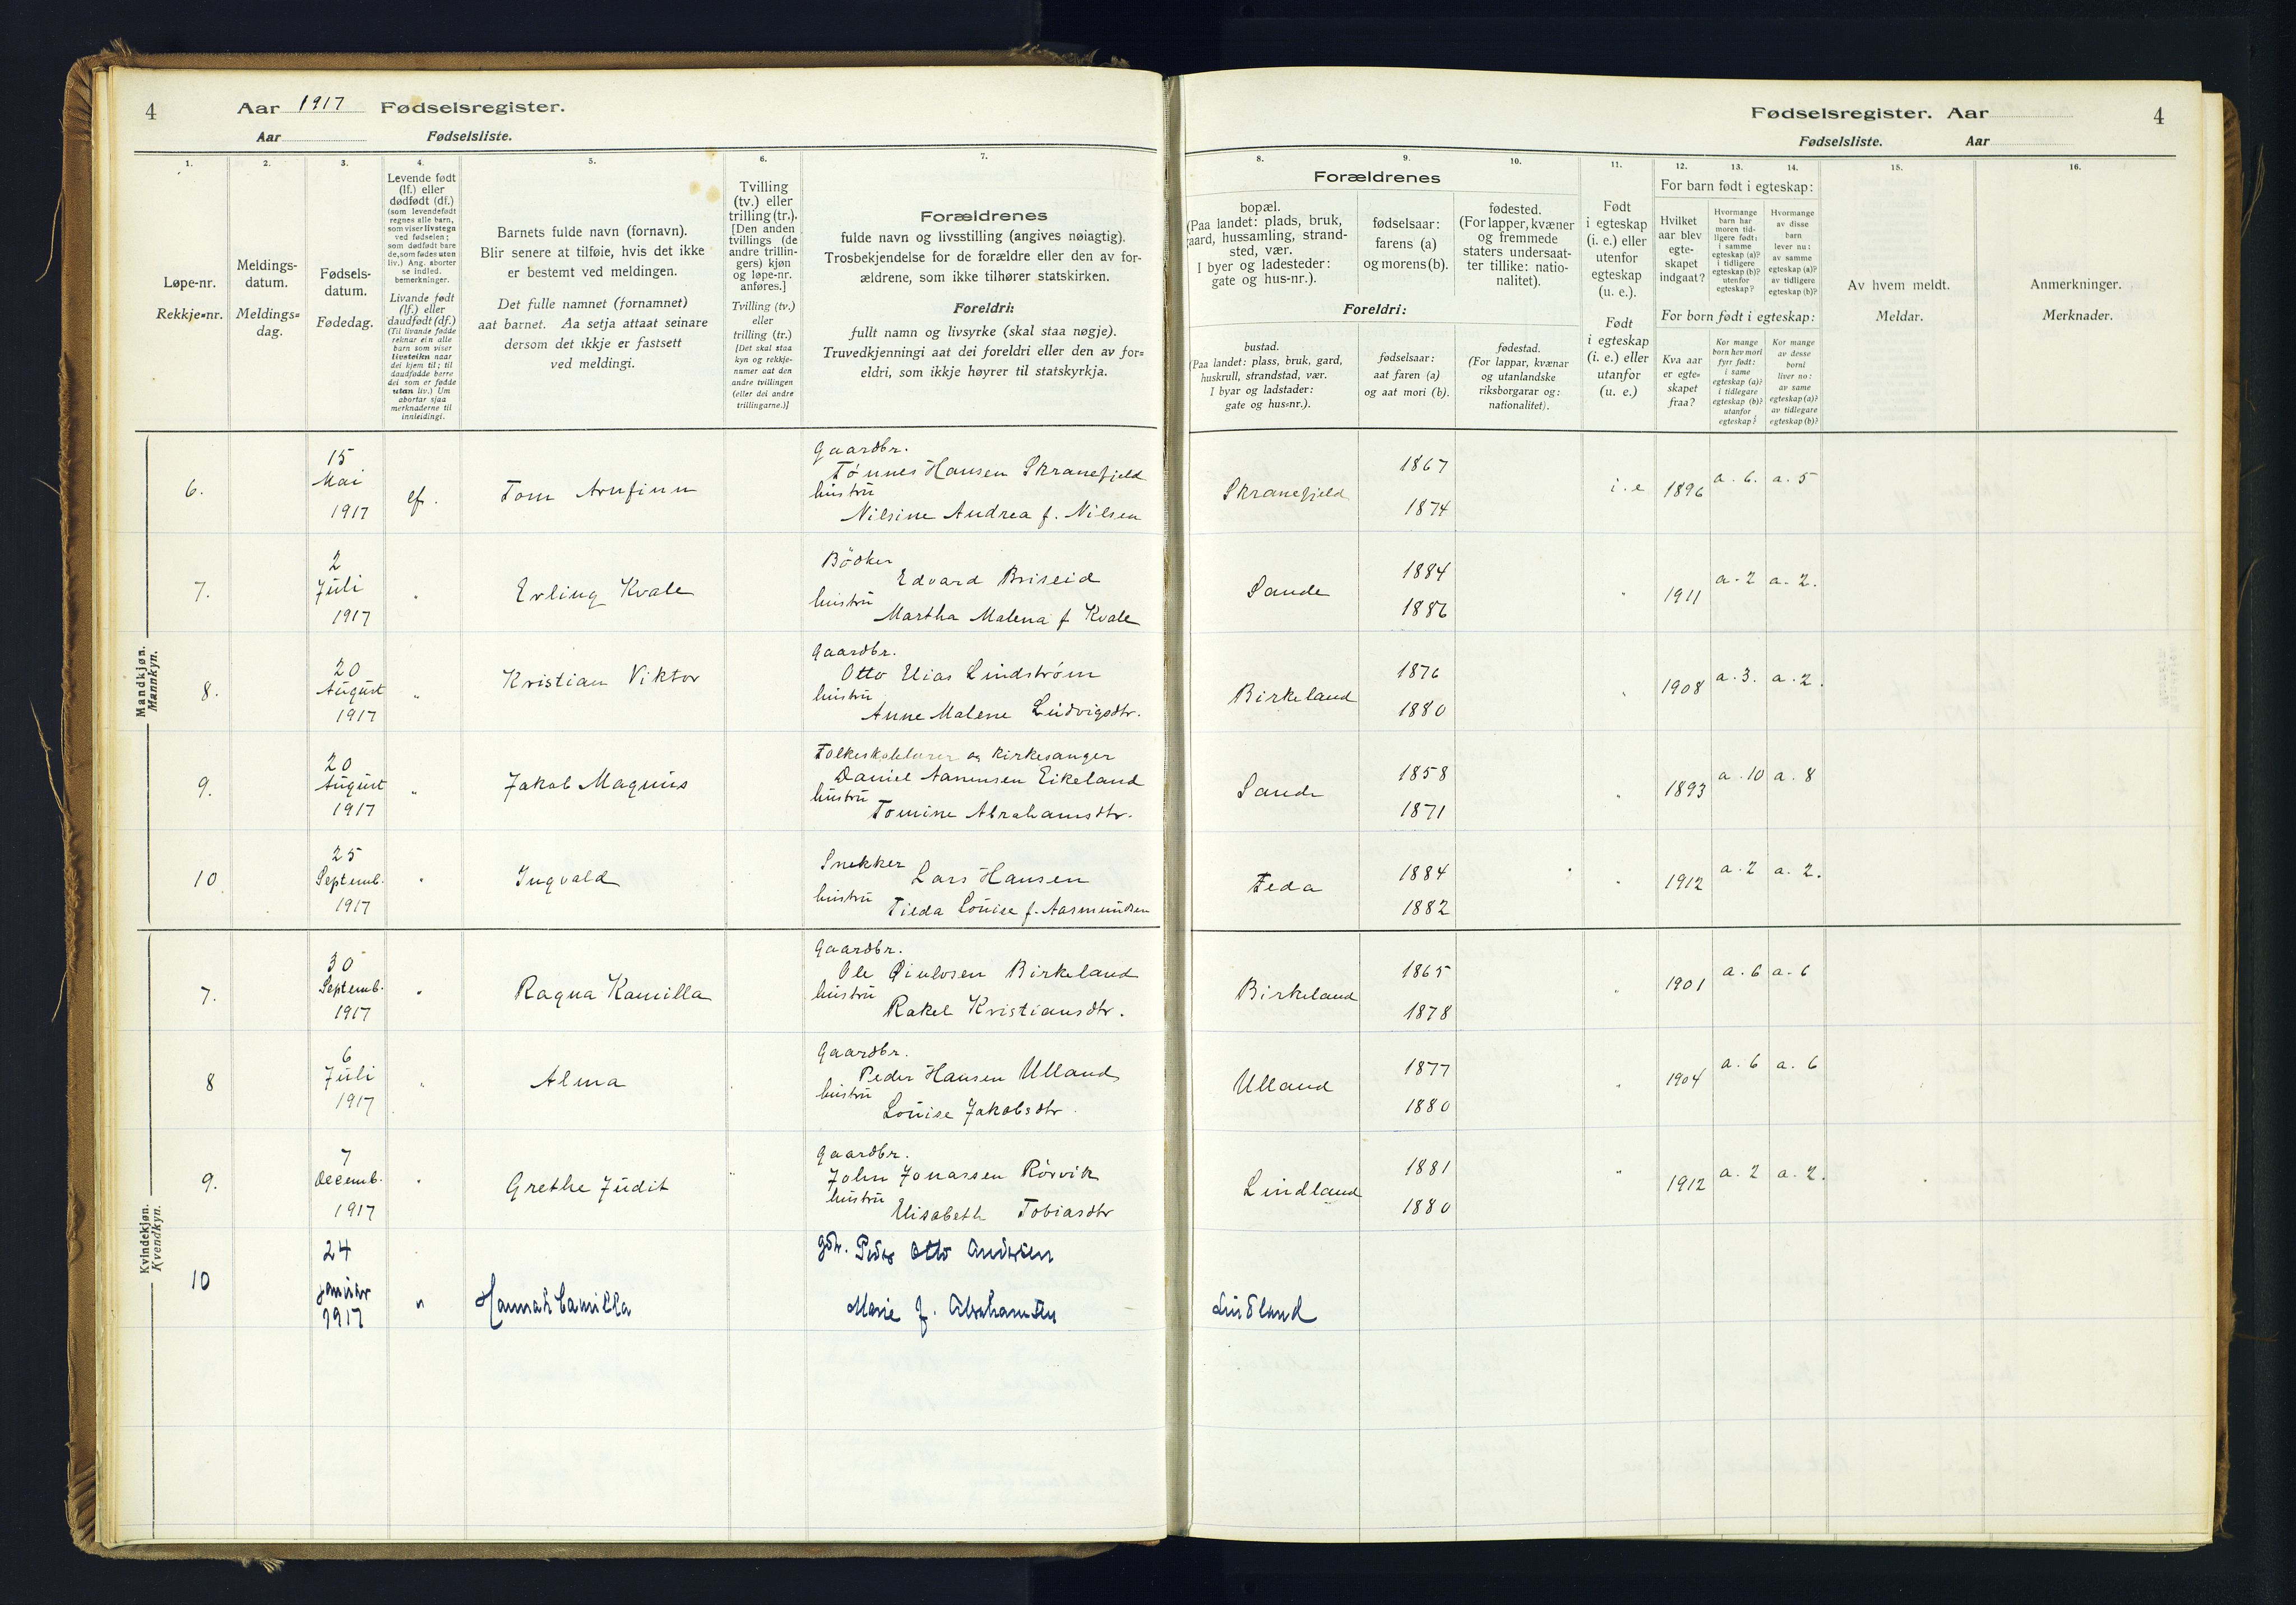 4 Aar 1917 Fødselsregister.
Aar Fødselsliste.
Fødselsregister. Aar 4
Fødselsliste. Aar
1. 2. 3. 4. 5. 6. 7.
Løpe-nr.
Rekkje=nr.
Meldings-
datum.
Meldings=
dag.
Fødsels-
datum.
Fødedag.
Levende født
(lf.) eller
dødfødt (df.)
(som levendefødt
regnes alle barn,
som viser livstegn
ved fødselen;
som dødfødt bare
de, som fødes uten
liv.) Ang. aborter
se indled.
bemerkninger.
Livande født
(lf.) eller
daudfødt (df.)
(Til livande fødde
reknar ein alle
barn som viser
livsteikn naar
dei kjem til; til
daudfødde berre
dei som er fødde
utan liv.) Um
abortar sjaa
merknaderne til
innleidingi.
Barnets fulde navn (fornavn).
Blir senere at tilføie, hvis det ikke
er bestemt ved meldingen.
Det fulle namnet (fornamnet)
aat barnet. Aa setja attaat seinare
dersom det ikkje er fastsett
ved meldingi.
Tvilling
(tv.) eller
trilling (tr.).
[Den anden
tvillings (de
andre trillin-
gers) kjøn
og løpe-nr.
anføres.]
Tvilling (tv.)
eller
trilling (tr.)
[Det skal staa
kyn og rekkje-
numer aat den
andre tvillingen
(eller dei andre
trillingarne.)]
Forældrenes
fulde navn og livsstilling (angives nøiagtig).
Trosbekjendelse for de forældre eller den av for-
ældrene, som ikke tilhører statskirken.
Foreldri:
fullt namn og livsyrke (skal staa nøgje).
Truvedkjenningi aat dei foreldri eller den av for=
eldri, som ikkje høyrer til statskyrkja.
8. 9. 10. 11. 12. 13. 14. 15. 16.
Forældrenes
bopæl.
(Paa landet: plads, bruk,
gaard, hussamling, strand-
sted, vær.
I byer og ladesteder:
gate og hus-nr.).
fødselsaar:
farens (a)
og morens (b).
fødested.
(For lapper, kvæner
og fremmede
staters undersaat-
ter tillike: natio-
nalitet).
Foreldri:
bustad.
(Paa landet: plass, bruk, gard,
huskrull, strandstad, vær.
I byar og ladstader:
gate og hus=nr.).
fødselsaar:
aat faren (a)
og aat mori (b).
fødestad.
(For lappar, kvænar
og utanlandske
riksborgarar og:
nationalitet).
Født
i egteskap
(i. e.) eller
utenfor
egteskap
(u. e.).
Født
i egteskap
(i. e.) eller
utanfor
(u. e.)
For barn født i egteskap:
Hvilket
aar blev
egte-
skapet
indgaat?
Hvormange
barn har
moren tid-
ligere født:
i samme
egteskap (a)?
i tidligere
egteskap (b)?
utenfor
egteskap?
Hvormange
av disse
barn
lever nu:
av samme
egteskap (a)?
av tidligere
egteskap (b)?
For born født i egteskap:
Kva aar
er egte=
skapet
fraa?
Kor mange
born hev mori
fyrr født:
i same
egteskap (a)?
i tidlegare
egteskap (b)?
utanfor
egteskap?
Kor mange
av desse
borni
liver no:
av same
egteskap (a)?
av tidlegare
egteskap (b)?
Av hvem meldt.
Meldar.
Anmerkninger.
Merknader.
Mandkjøn.
Mannkyn.
6. 15 Mai 1917 lf. Tom Arnfinn
Gaardbr.
Tønnes Hansen Skranefjeld
hustru
Nilsine Andrea f. Nilsen
Skranefjeld 1867 1874 i. e 1896 a. 6. a. 5
7. 2 Juli 1917 " Erling Kvale
Bödker
Edvard Briseid
hustru
Martha Malena f Kvale
Sande 1884 1886 " 1911 a. 2 a. 2.
8. 20 August 1917 " Kristian Viktor
Gaardbr.
Otto Elias Lindström
hustru
Anne Malene Ludvigsdtr.
Birkeland 1876 1880 " 1908 a. 3. a. 2.
9. 20 August 1917 " Jakob Magnus
Folkeskolelærer og kirkesanger
Daniel Aanensen Eikeland
hustru
Tomine Abrahamsdtr.
Sande 1858 1871 " 1893 a. 10 a. 8
10 25 Septemb. 1917 " Ingvald
Snekker
Lars Hansen
hustru
Tilda Louise f. Aasmundsen
Feda 1884 1882 " 1912 a. 2 a. 2.
Kvindekjøn.
Kvendkyn.
7. 30 Septemb. 1917 " Ragna Kamilla
Gaardbr.
Ole Birkeland
hustru
Rakel Kristiansdtr.
Birkeland 1865 1878 " 1901 a. 6 a. 6
8 6 Juli 1917 " Alma
Gaardbr.
Peder Hansen Ulland
hustru
Louise Jakobsdtr.
Ulland 1877 1880 " 1904 a. 6 a. 6
9. 7 Decemb. 1917 " Grethe Judit
Gaardbr.
John Jonassen Rörvik
hustru
Elisabeth Tobiasdtr
Lindland 1881 1880 " 1912 a. 2 a. 2.
10 24 januar 1917 " Hannah Camilla
gdr. Peder Otto Andersen
Marie f. Abrahamsen
Lindland